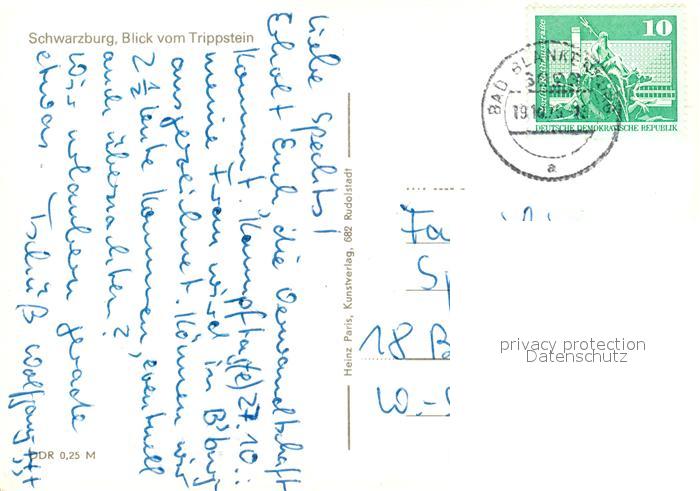 Schwarzburg, Blick vom Trippstein
Liebe Spechts!
Erholt Euch, die Verwandtschaft
kommt. Kampftag(e) 27.10.:
meine Frau wird in B'burg
ausgezeichnet. Können wir
2 1/2 Leute kommen, eventuell
auch übernachten?
Wir urlauben gerade
etwas. Tschüß Wolfgang +++
DDR 0,25 M
Heinz Paris, Kunstverlag, 682 Rudolstadt
10
DEUTSCHE DEMOKRATISCHE REPUBLIK
BAD BLANKENBURG
a
Fa
Sp
18 B
W.-
privacy protection
Datenschutz